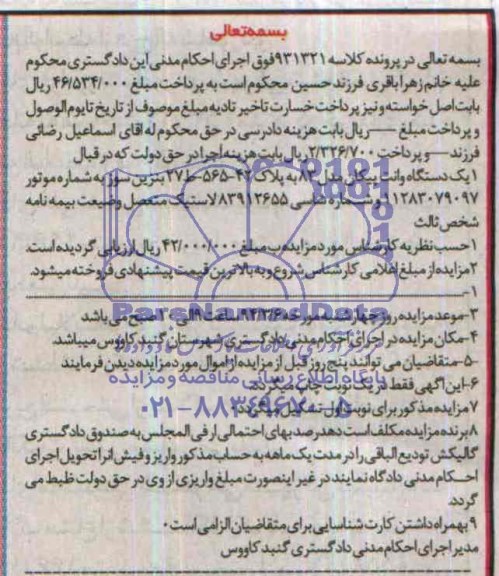 بسمه‌تعالی
بسمه تعالی در پرونده کلاسه ۹۳۱۳۲۱ فوق اجرای احکام مدنی این دادگستری محکوم
علیه خانم زهرا باقری فرزند حسین محکوم است به پرداخت مبلغ ۴۶/۵۳۴/۰۰۰ ریال
بابت اصل خواسته و نیز پرداخت خسارت تاخیر تادیه مبلغ موصوف از تاریخ تا یوم الوصول
و پرداخت مبلغ —— ریال بابت هزینه دادرسی در حق محکوم له اقای اسماعیل رضائی
فرزند —— و پرداخت ۲/۳۲۶/۷۰۰ ریال بابت هزینه اجرا در حق دولت که در قبال
۱ یک دستگاه وانت پیکان مدل ۸۳ به پلاک ۴۲-۵۶۵ ط ۲۷ بنزین سوز به شماره موتور
۱۱۲۸۳۰۷۹۰۹۷ و شماره شاسی ۸۳۹۱۲۶۵۵ لاستیک متصل وضیعت بیمه نامه
شخص ثالث
۱ حسب نظریه کارشناس مورد مزایده ب مبلغ ۴۲/۰۰۰/۰۰۰ ریال ارزیابی گردیده است.
۲ مزایده از مبلغ اعلامی کارشناس شروع و به بالاترین قیمت پیشنهادی فروخته میشود.
۱-
۳-موعد مزایده روز چهارشنبه مورخه ۹۴/۳/۶ ساعت ۹ الی ۱۰ صبح می باشد
۴-مکان مزایده در اجرای احکام مدنی دادگستری شهرستان گنبد کاووس میباشد.
۵-متقاضیان می توانند پنج روز قبل از مزایده از اموال مورد مزایده دیدن فرمایند
۶-این اگهی فقط در یک نوبت چاپ میگردد
۷ مزایده مذکور برای نوبت اول تشکیل میگردد
۸ برنده مزایده مکلف است ده درصد بهای احتمالی را فی المجلس به صندوق دادگستری
گالیکش تودیع الباقی را در مدت یک ماهه به حساب مذکور واریز و فیش انرا تحویل اجرای
احکام مدنی دادگاه نمایند در غیر اینصورت مبلغ واریزی از وی در حق دولت ظبط می
گردد.
۹ بهمراه داشتن کارت شناسایی برای متقاضیان الزامی است.
مدیر اجرای احکام مدنی دادگستری گنبد کاووس
ParsNamadData
پایگاه اطلاع رسانی مناقصه و مزایده
۰۲۱-۸۸۳۴۹۶۷۰-۵